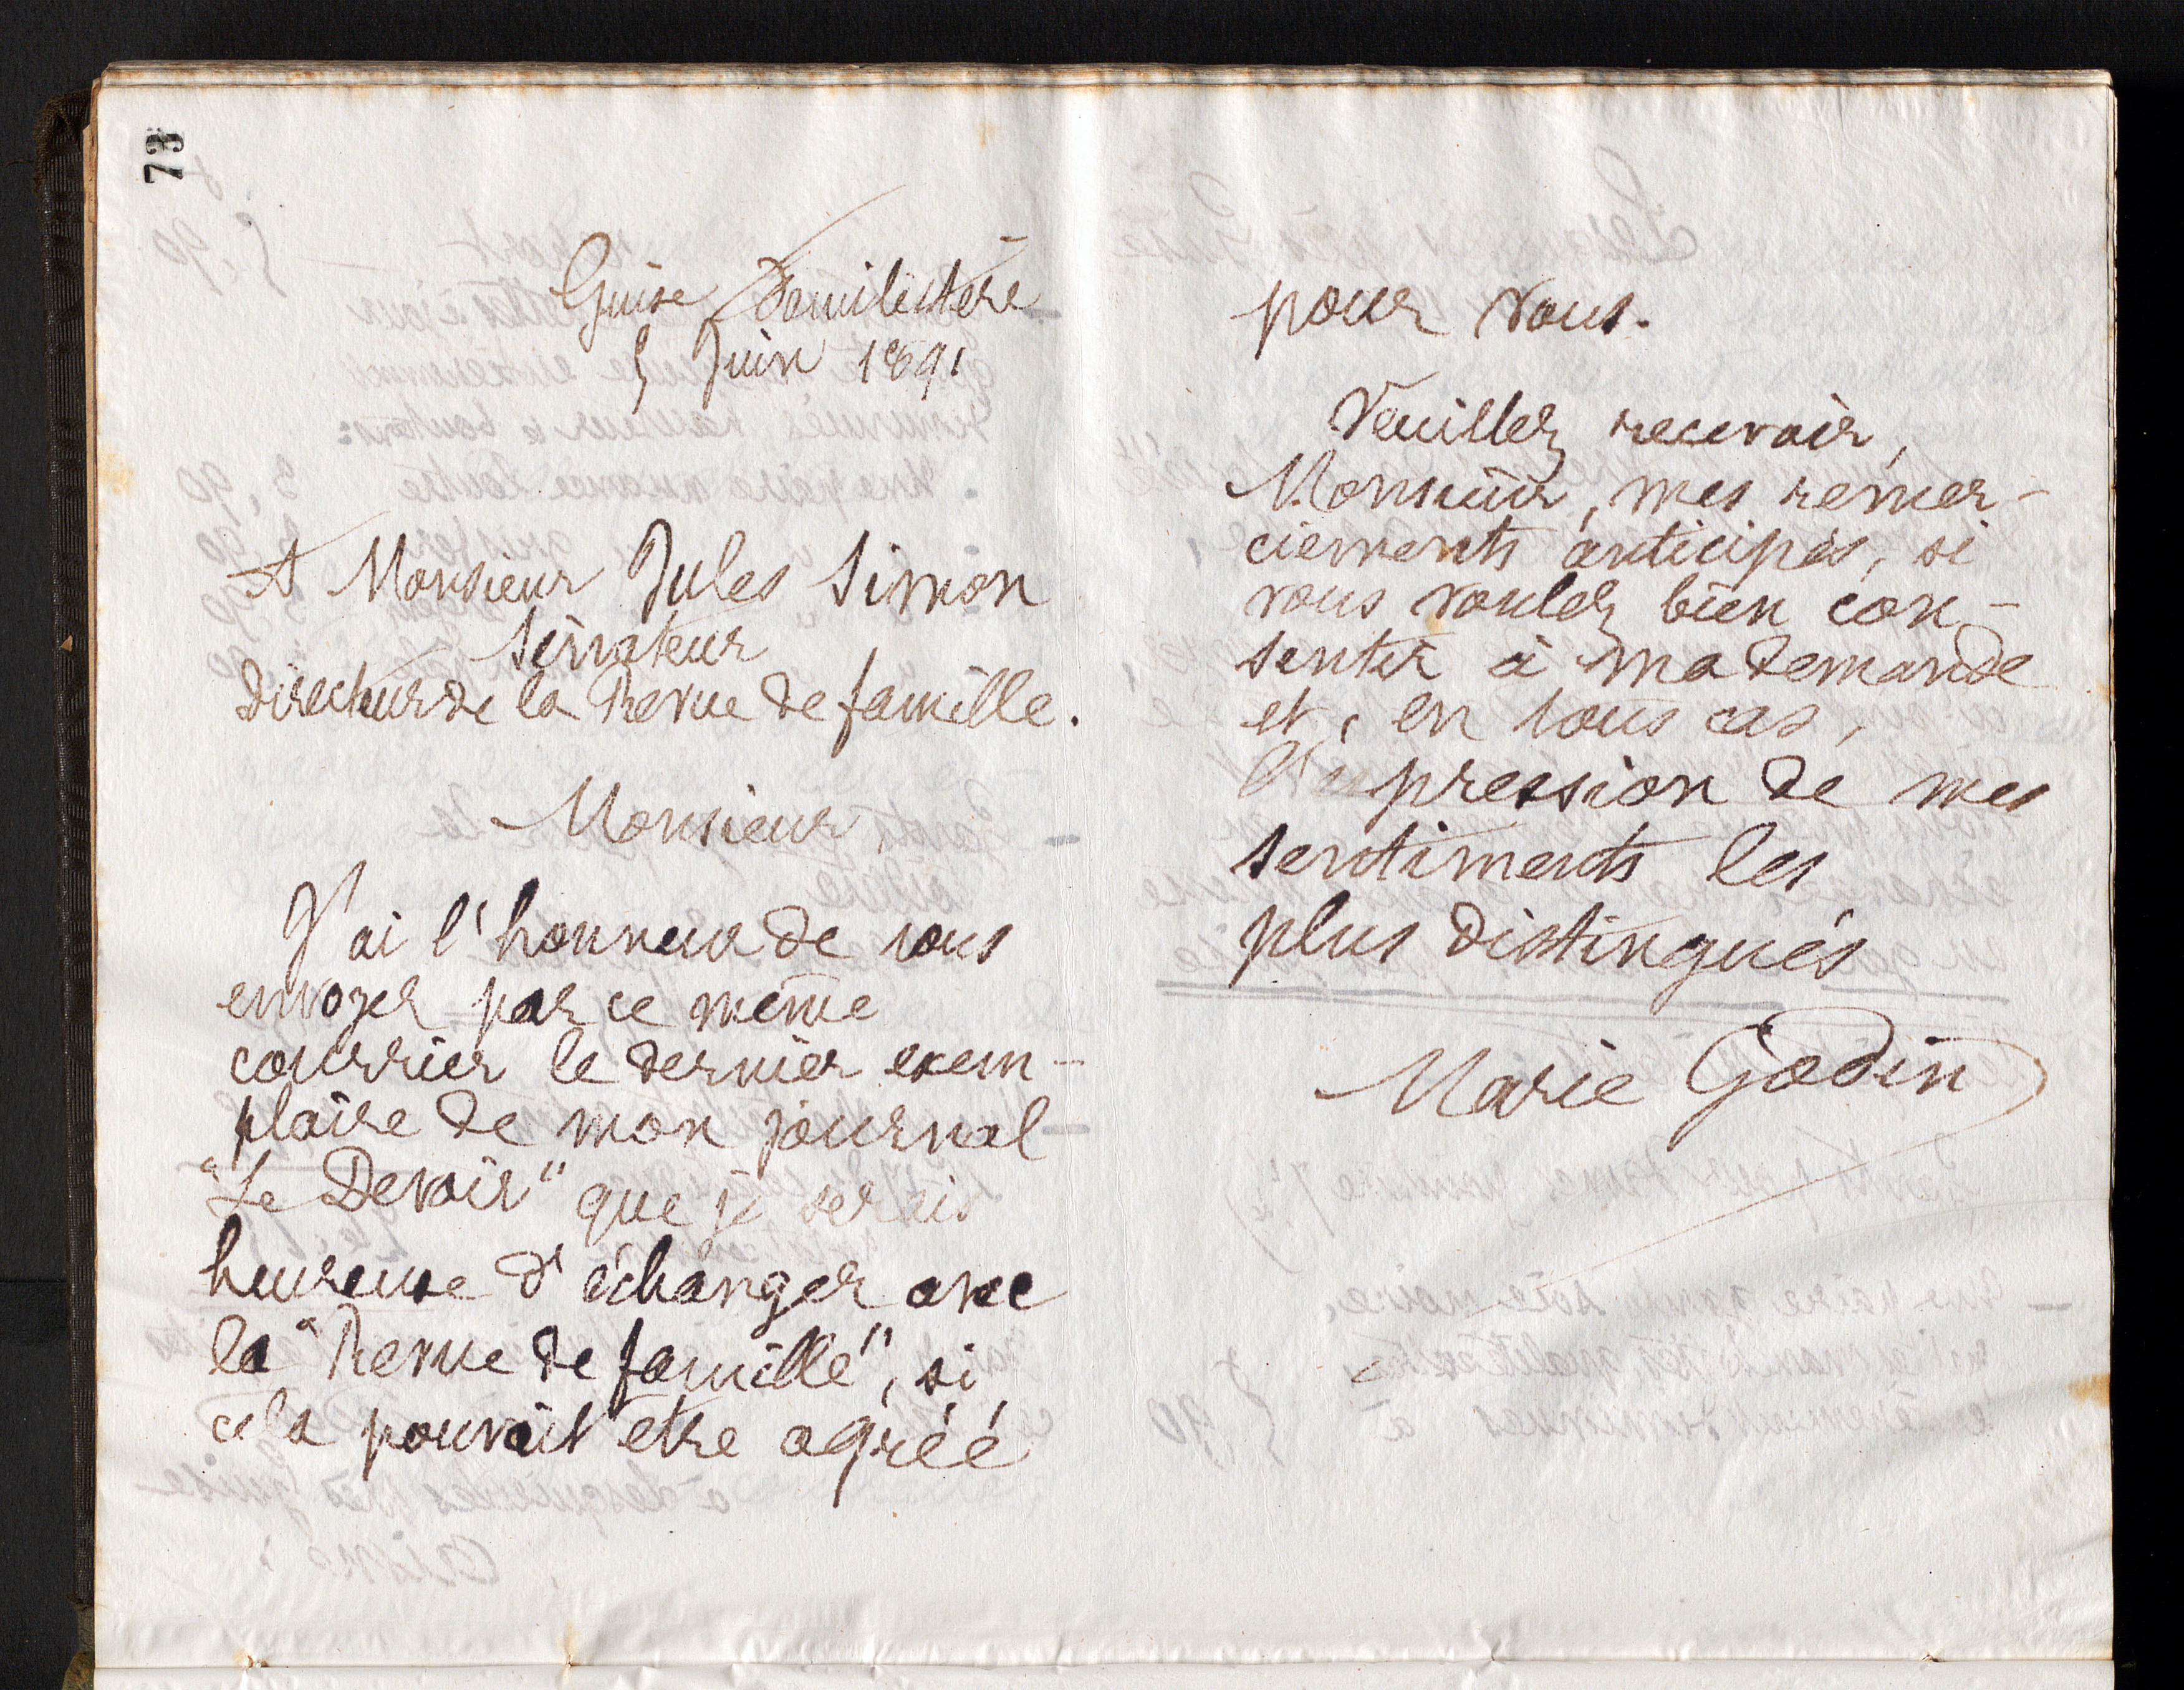 73
Guise Familistère
5 Juin 1891
A Monsieur Jules Simon
Sénateur
directeur de la Revue de famille.
Monsieur,
J'ai l'honneur de vous
envoyer par ce même
courrier le dernier exem-
plaire de mon journal
"Le Devoir" que je serais
heureuse d'échanger avec
la "Revue de famille", si
cela pouvait être agréé
pour vous.
Veuillez recevoir,
Monsieur, mes remer-
ciements anticipés, si
vous voulez bien con-
sentir à ma demande
et, en tous cas,
l'expression de mes
sentiments les
plus distingués
Marie Godin